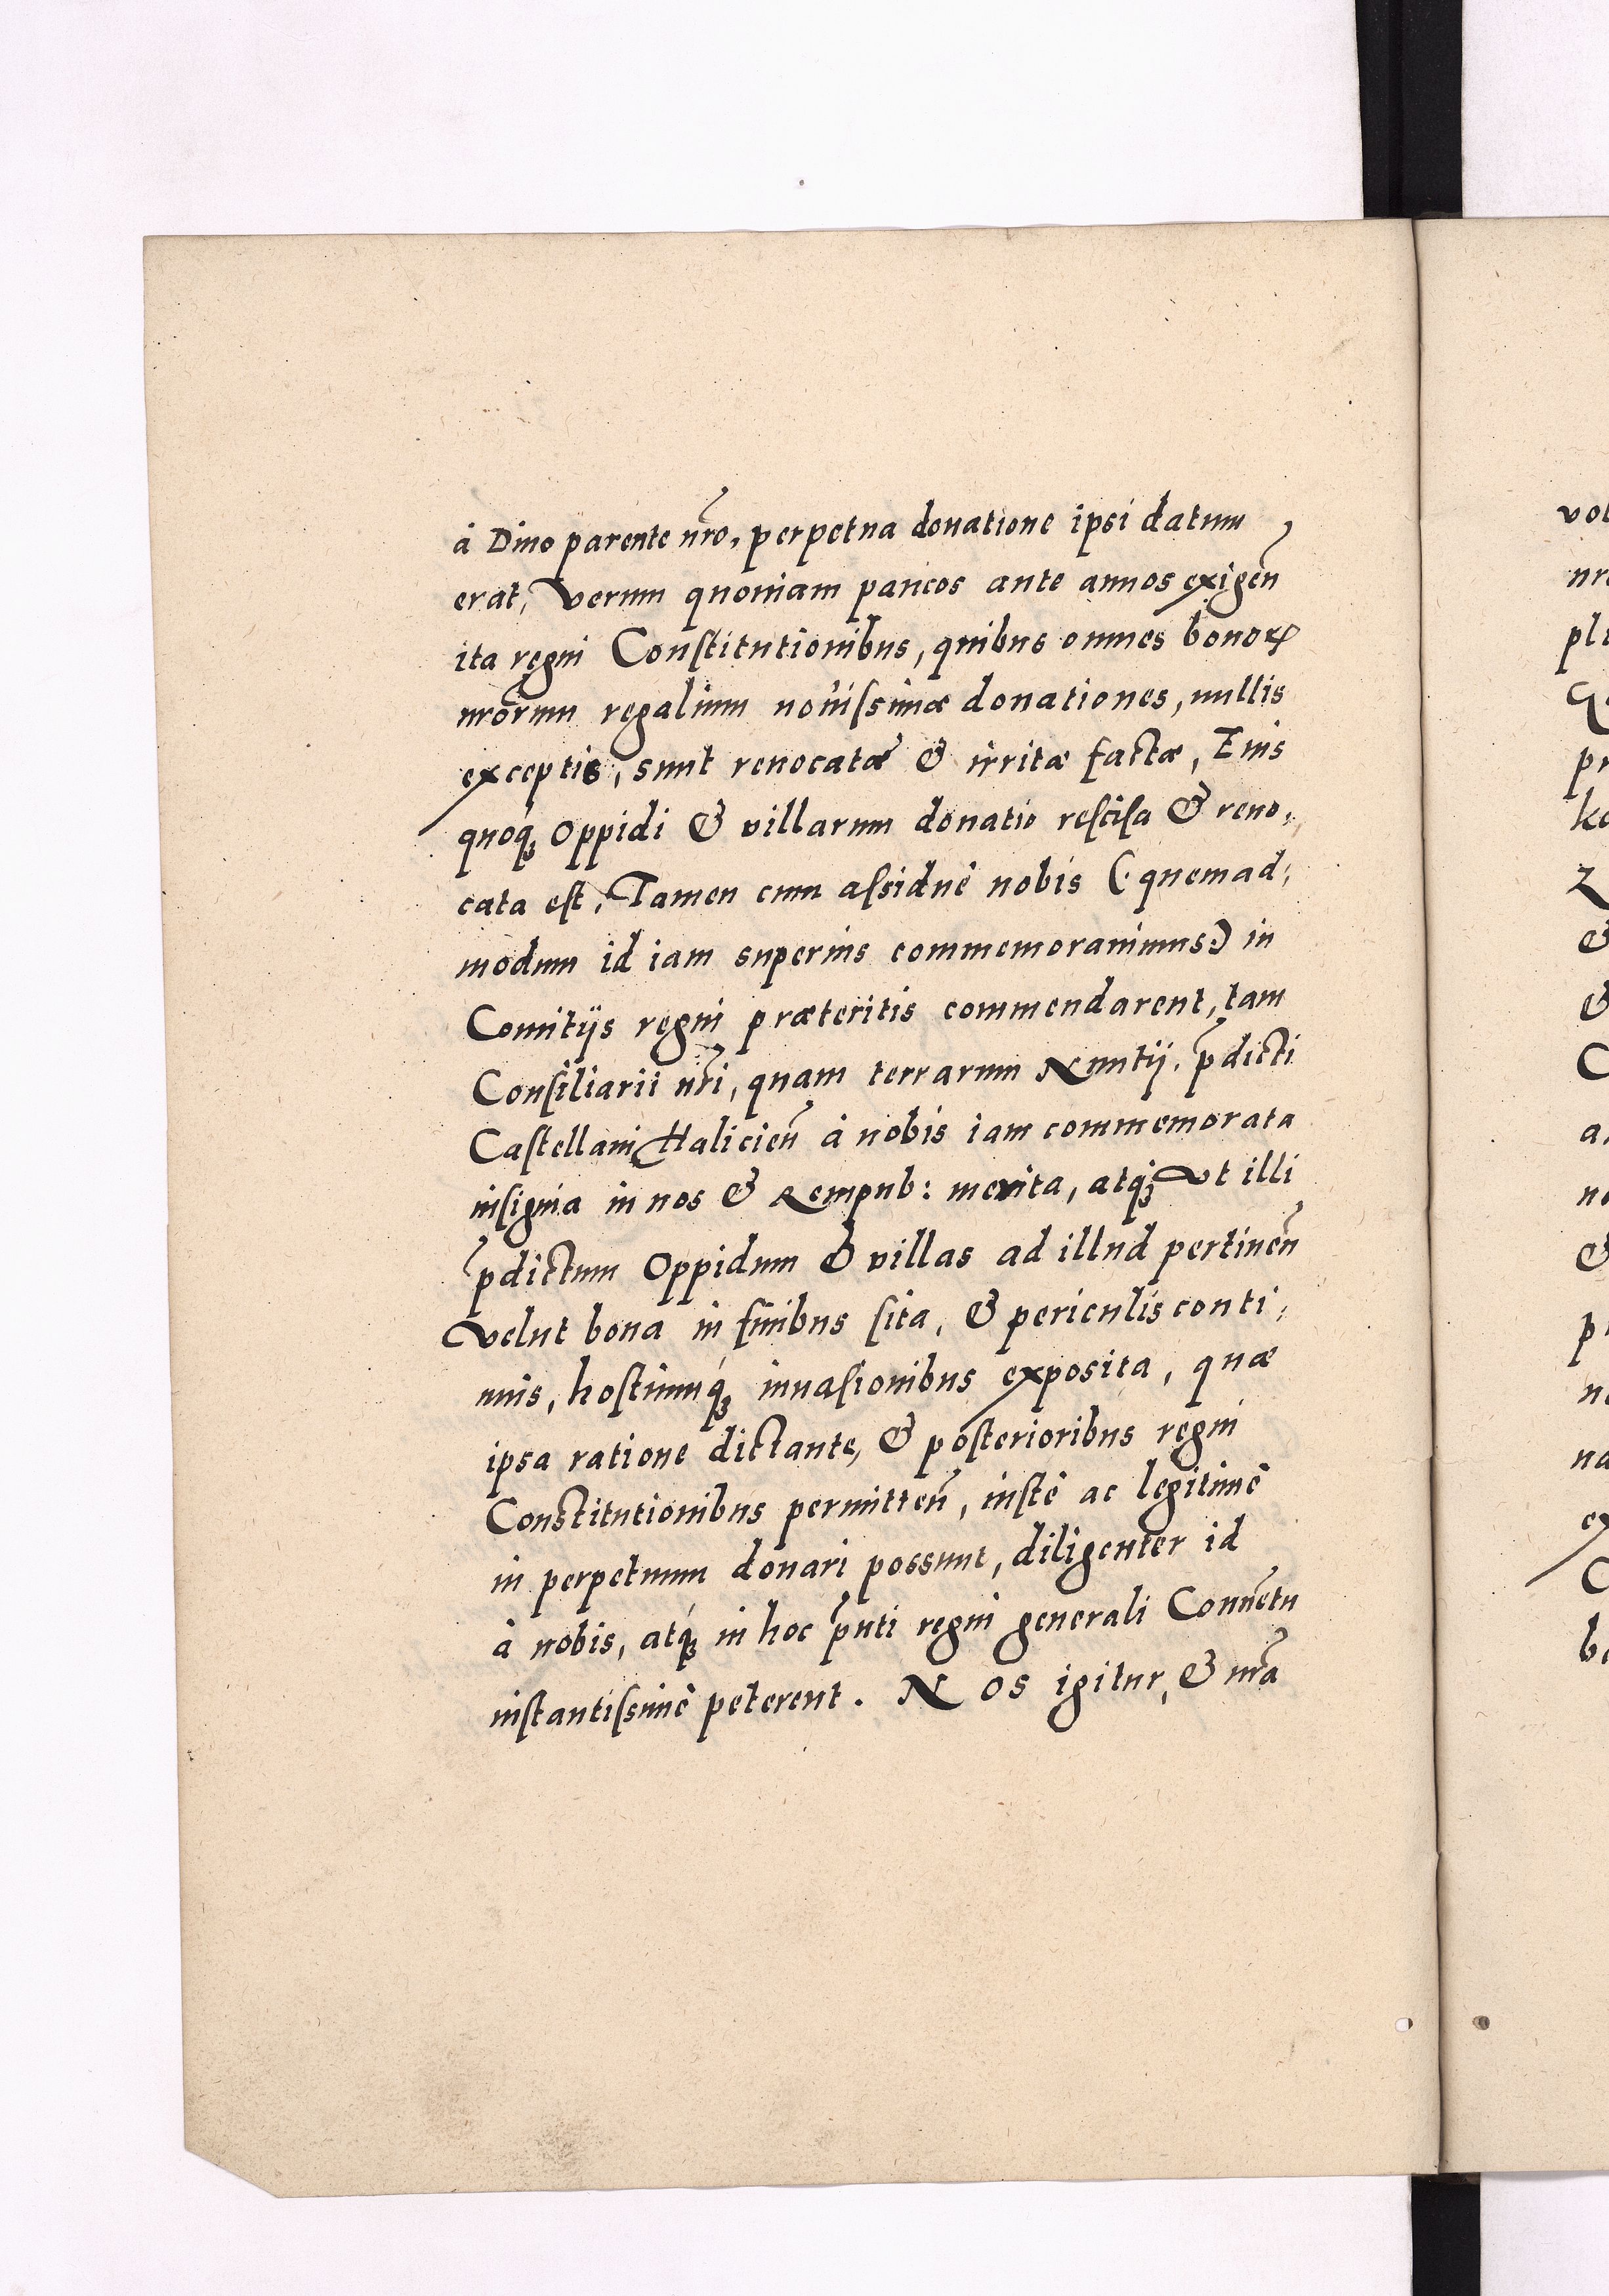 à Diuo parente nr̃o, perpetua donatione ipsi datum
erat, Verum quoniam paucos ante annos exigeñ
ita regni Conſtitutionibus, quibus omnes bonoꝝ
nr̃orum regalium nouiſsimæ donationes, nullis
exceptis, sunt reuocatæ & irritæ factæ, Eius
quoq́ꝫ Oppidi & villarum donatio reſciſa & reuo,
cata eſt, Tamen cum aſsiduè nobis (: quemad,
modum id iam superius commemorauimus:) in
Comitijs regni præteritis commendarent, tam
Conſiliarii nr̃i, quam terrarum Nuntij, p̃dicti
Caſtellani Halicieñ à nobis iam commemorata
inſignia in nos & Rempub: merita, atq́ꝫ Vt illi
p̃dictum Oppidum & villas ad illud pertineñ
Velut bona in finibus ſita, & periculis conti,
nuis, hoſtiumq́ꝫ inuaſionibus exposita, quæ
ipsa ratione dictante, & poſterioribus regni
Conſtitutionibus permitteñ, iuſtè ac legitimè
in perpetuum donari possunt, diligenter id
à nobis, atq́ꝫ in hoc p̃nti regni generali Conuẽtu
inſtantiſsimè peterent. NOS igitur, & nr̃a
vol
nr
pli
pr
ke
Z
&
&
C
a
no
&
p
na
ex
C
bo